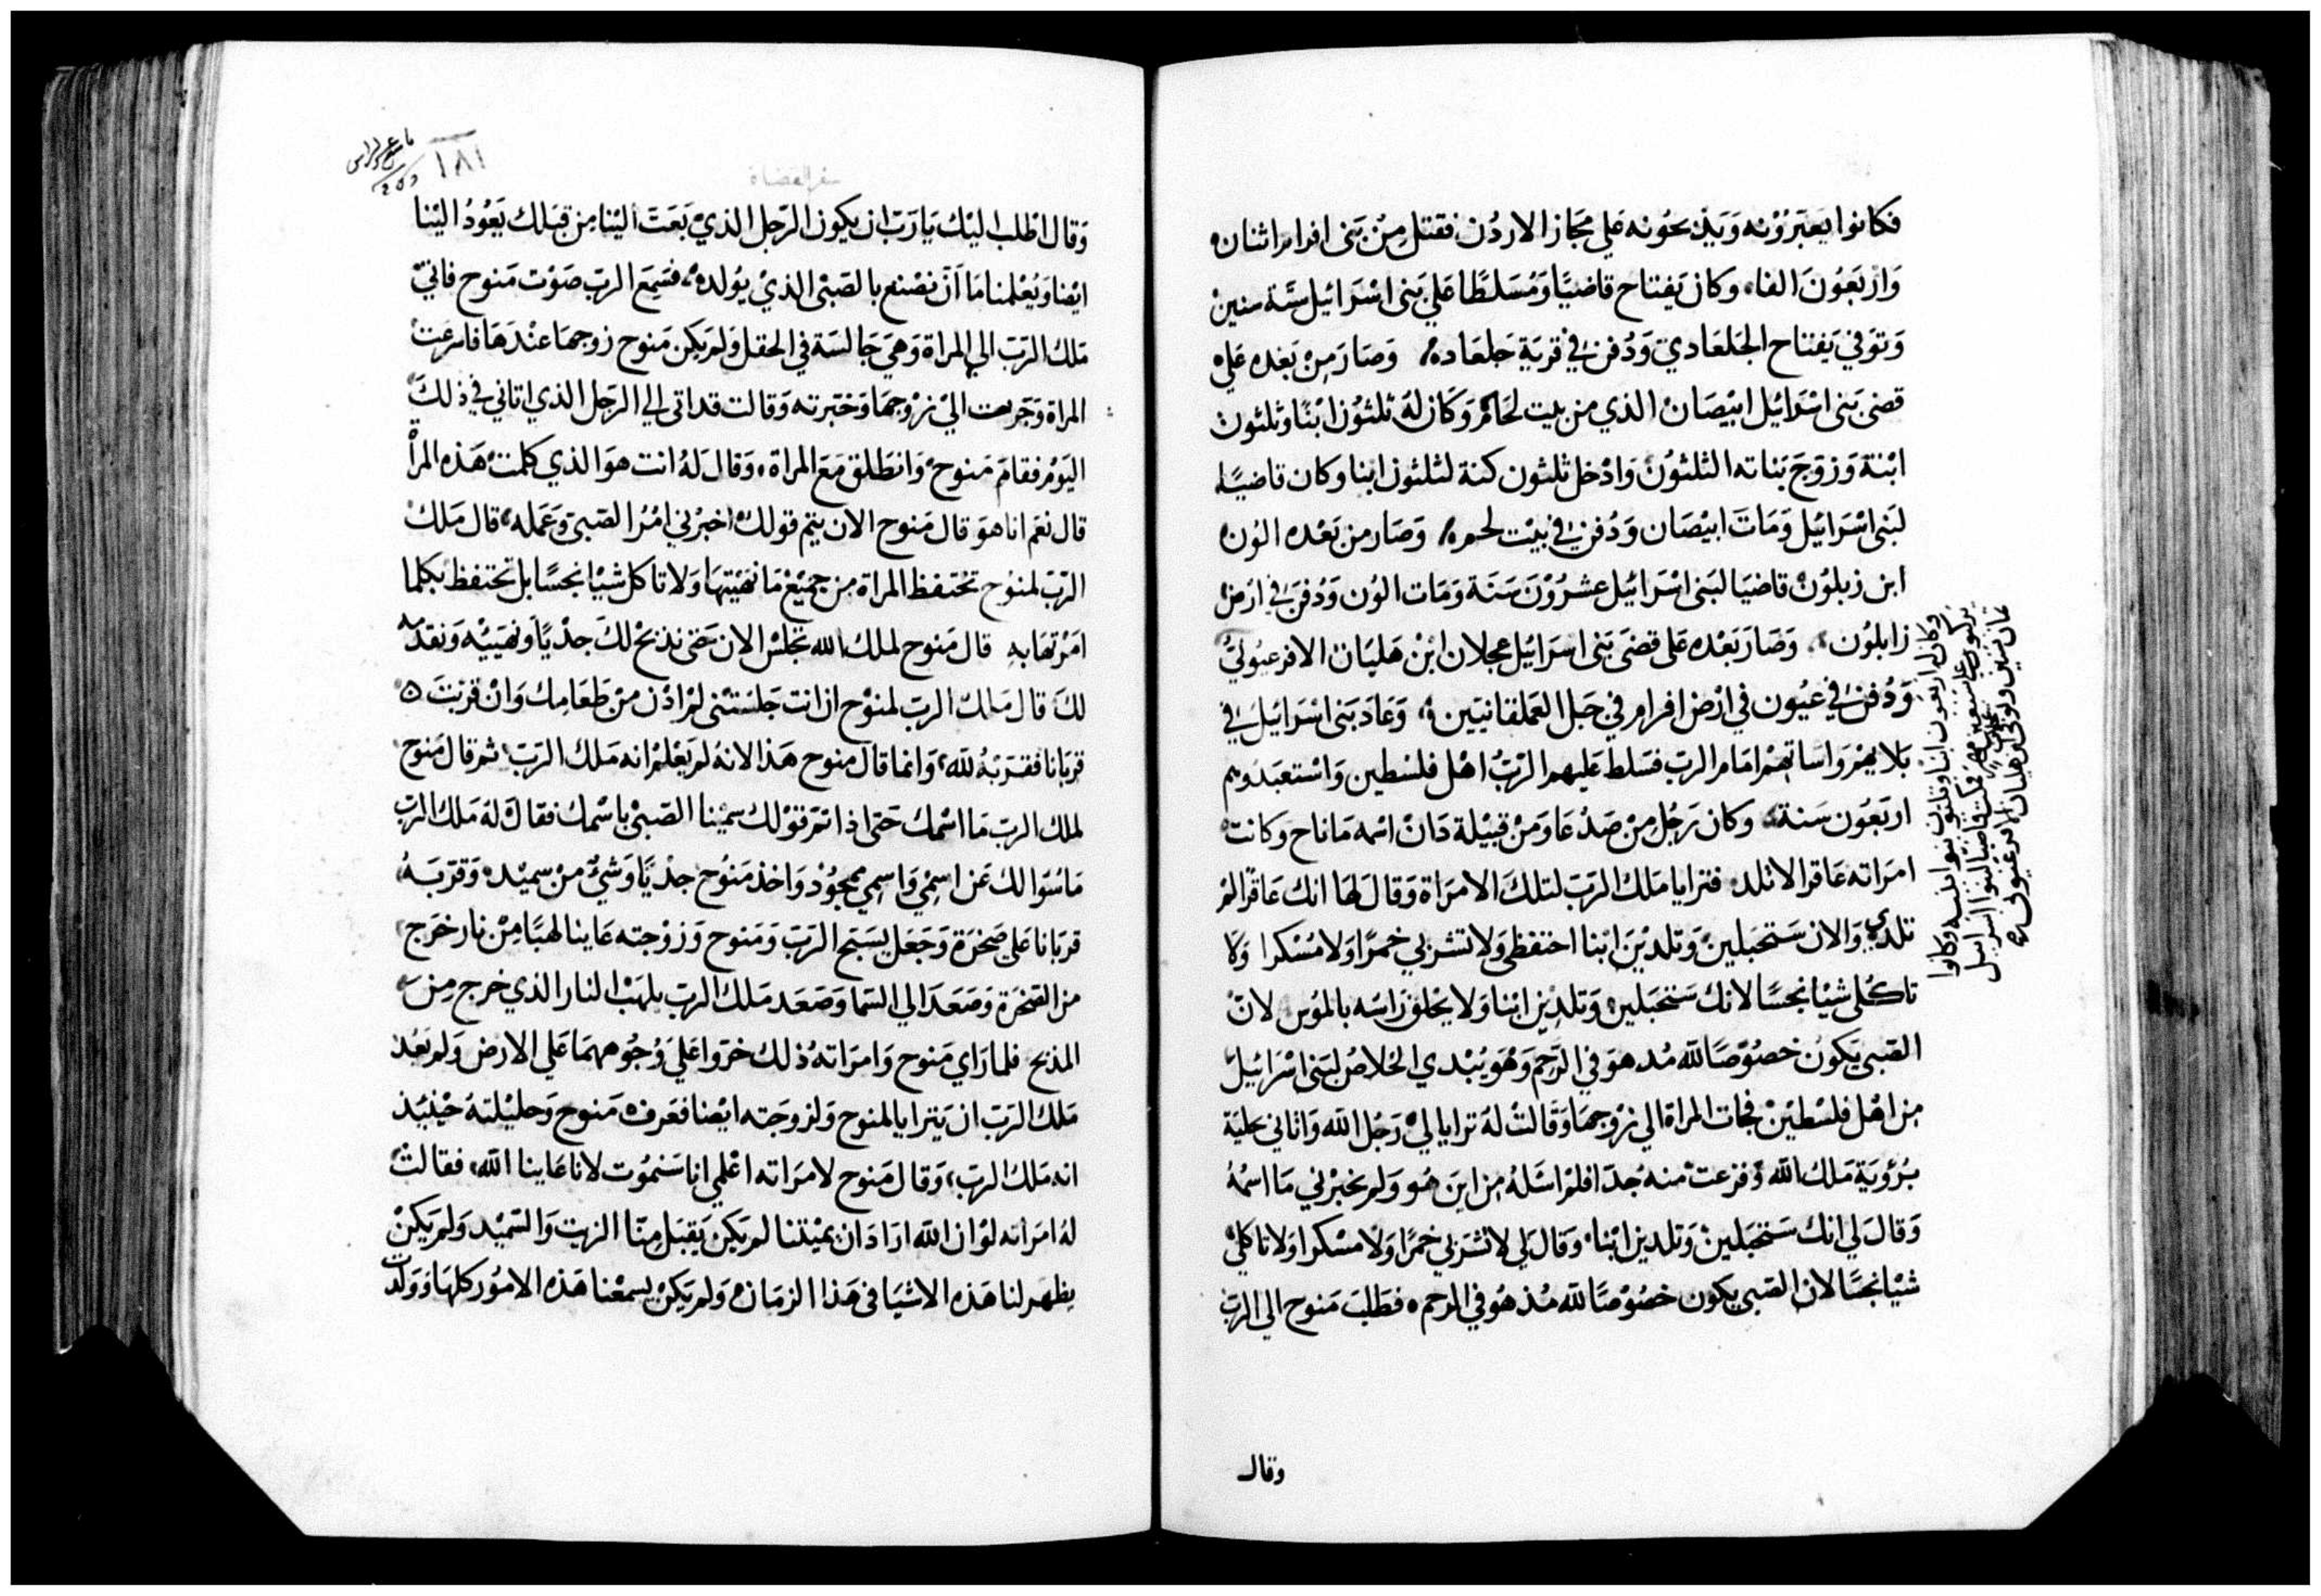 فكانوا يعبرونه ويذبحونه على مجاز الاردن فقتل من بنى افرام اثنان
واربعون الفا، وكان يفتاح قاضيا ومسلطا على بنى اسرائيل ستة سنين
وتوفي يفتاح الجلعادي ودفن في قرية جلعاده وصار من بعده على
قضى بنى اسرائيل ابيصان الذي من بيت لحام وكان له ثلثون ابنا وثلثون
ابنة وزوج بناته الثلثون وادخل ثلثون كنة لثلثون ابنا وكان قاضيا
لبنى اسرائيل ومات ابيصان ودفن في بيت لحم وصار من بعده الون
ابن زبلون قاضيا لبنى اسرائيل عشرون سنة ومات الون ودفن في ارض
زابلون، وصار بعده على قضى بنى اسرائيل عجلان ابن هليان الافرعيوني
ودفن في عيون في ارض افرام في جبل العملقانيين، وعاد بنى اسرائيل في
بلايهم واساتهم امام الرب فسلط عليهم الرب اهل فلسطين واستعبدوهم
اربعون سنة، وكان رجل من صدعا ومن قبيلة دان اسمه ماناح وكانت
امراته عاقرا لاتلد فترايا ملك الرب لتلك الامراة وقال لها انك عاقرا لم
تلدي والان ستحبلين وتلدين ابنا احتفظى ولا تشربي خمرا ولا مسكرا ولا
تاكلى شيا نجسا لانك ستحبلين وتلدين ابنا ولا يحلق راسه بالموس لان
الصبى يكون خصوصا لله مد هو في الرحم وهو يبدي الخلاص لبنى اسرائيل
من اهل فلسطين فجات المراة الي زوجها وقالت له ترايا لي رجل الله واتاني بحلية
برؤية ملك الله وفزعت منه جدا فلم اسئله من اين هو ولم يخبرني ما اسمه
وقال لي انك ستحبلين وتلدين ابنا، وقال لي لا تشربي خمرا ولا مسكرا ولا تاكلي
شيا نجسا لان الصبى يكون خصوصا لله مذ هو في الرحم، فطلب منوح الي الرب
وكان له اربعون ابنا وثلثون بنوا بنيه وكانوا
يركبون على سبعين فمكث قاضيا لبنوا اسرائيل
ثمان سنين وتوفى هليان الافرعيونى
وقال
١٨١
سفر القضاة
وقال اطلب اليك يارب ان يكون الرجل الذي بعث الينا من قبلك يعود الينا
ايضا ويعلمنا ما ان نصنع بالصبى الذي يولد، فسمع الرب صوت منوح فاتى
ملك الرب الي المراة وهي جالسة في الحقل ولم يكن منوح زوجها عندها فاسرعت
المراة وجريت الي زوجها وخبرته وقالت قد اتى الي الرجل الذي اتاني في ذلك
اليوم فقام منوح وانطلق مع المراة، وقال له انت هو الذي كلمت هذه المراة
قال نعم انا هو قال منوح الان يتم قولك اخبرني امر الصبي وعمله، قال ملك
الرب لمنوح تحتفظ المراة من جميع ما نهيتها ولا تاكل شيا نجسا بل تحتفظ بكلما
امرتها به قال منوح لملك الله تجلس الان حتى نذبح لك جديا ونهييه ونقدمه
لك قال ملك الرب لمنوح ان انت جلستنى لم ادن من طعامك وان قربت
قربانا فقربه لله، وانما قال منوح هذا لانه لم يعلم انه ملك الرب، ثم قال منوح
لملك الرب ما اسمك حتى اذا تم قولك سمينا الصبي باسمك فقال له ملك الرب
ما سوالك عن اسمي واسمي ممجود واخذ منوح جديا وشي من سميد وقربه
قربانا على صخرة وجعل يسبح الرب ومنوح وزوجته عاينا لهبا من نار خرج
من الصخرة وصعد الي السما وصعد ملك الرب بلهب النار الذي خرج من
المذبح فلما راي منوح وامراته ذلك خروا علي وجوههما علي الارض ولم يعد
ملك الرب ان يترايا لمنوح ولزوجته ايضا فعرف منوح وحليلته حينيذ
انه ملك الرب، وقال منوح لامراته اعلمي انا سنموت لانا عاينا الله، فقالت
له امراته لو ان الله اراد ان يميتنا لم يكن يقبل منا الزيت والسميد ولم يكن
يظهر لنا هذه الاشيا في هذا الزمان ولم يكن يسمعنا هذه الامور كلها وولدت